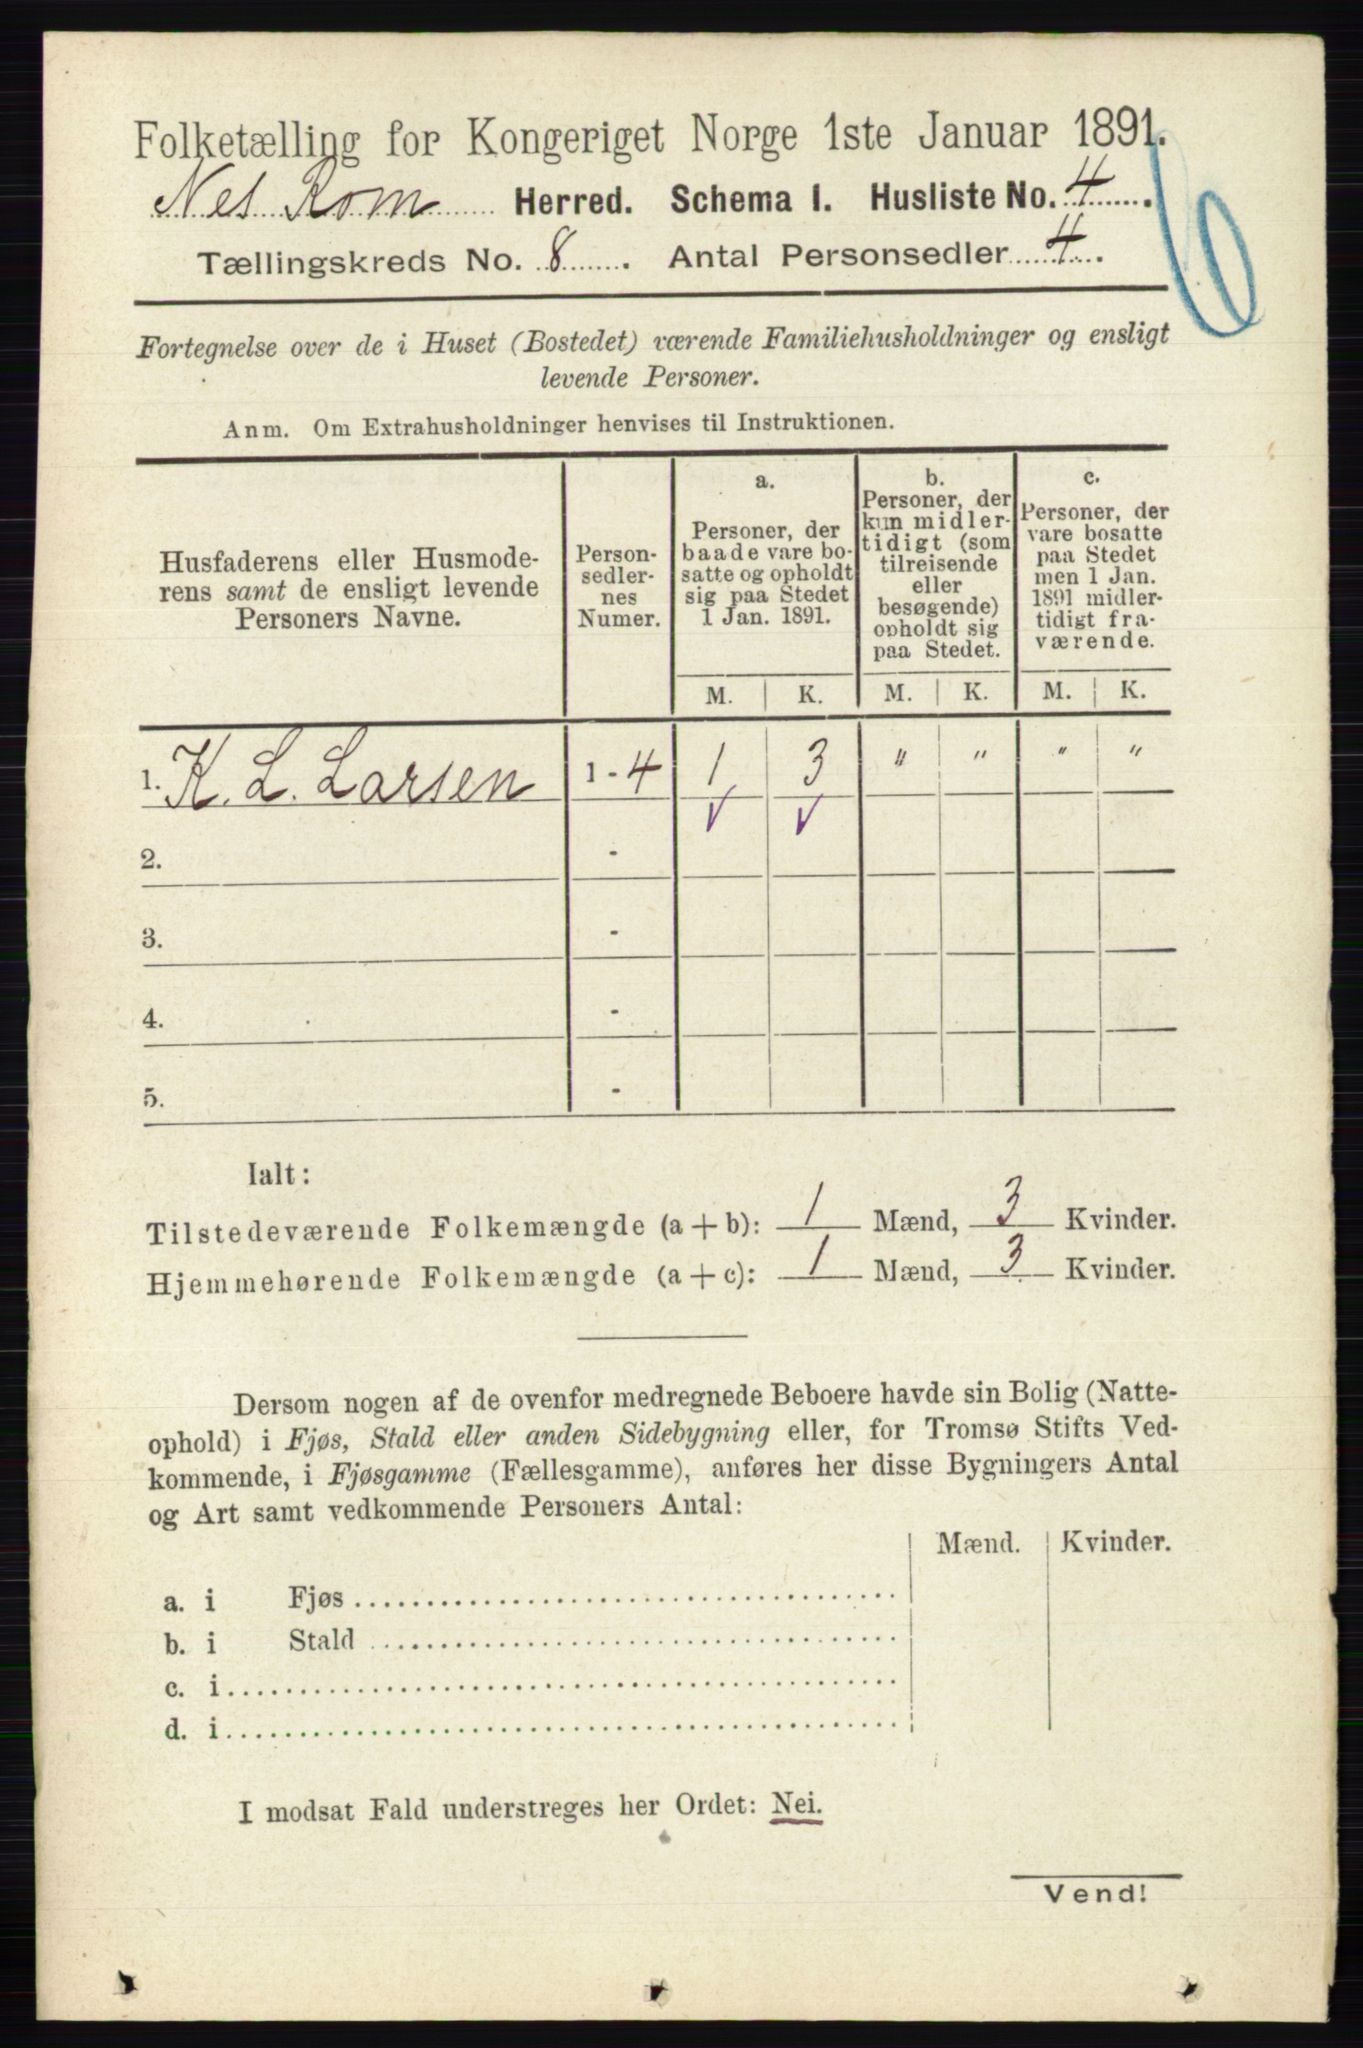 Folketælling for Kongeriget Norge 1ste Januar 1891.
Nes Rom Herred. Schema I. Husliste No. 4.
Tællingskreds No. 8. Antal Personsedler 4.
6
Fortegnelse over de i Huset (Bostedet) værende Familiehusholdninger og ensligt
levende Personer.
Anm. Om Extrahusholdninger henvises til Instruktionen.
Husfaderens eller Husmode-
rens samt de ensligt levende
Personers Navne.
Person-
sedler-
nes
Numer.
a.
Personer, der
baade vare bo-
satte og opholdt
sig paa Stedet
1 Jan. 1891.
b.
Personer, der
kun midler-
tidigt (som
tilreisende
eller
besøgende)
opholdt sig
paa Stedet.
c.
Personer, der
vare bosatte
paa Stedet
men 1 Jan.
1891 midler-
tidigt fra-
værende.
M. K. M. K. M. K.
1. K. L. Larsen 1 - 4 1 3 " " " "
√ √
2. -
3. -
4. -
5. -
Ialt:
Tilstedeværende Folkemængde (a + b): 1 Mænd, 3 Kvinder.
Hjemmehørende Folkemængde (a + c): 1 Mænd, 3 Kvinder.
Dersom nogen af de ovenfor medregnede Beboere havde sin Bolig (Natte-
ophold) i Fjøs, Stald eller anden Sidebygning eller, for Tromsø Stifts Ved-
kommende, i Fjøsgamme (Fællesgamme), anføres her disse Bygningers Antal
og Art samt vedkommende Personers Antal:
Mænd. Kvinder.
a. i Fjøs
b. i Stald
c. i
d. i
I modsat Fald understreges her Ordet: Nei.
Vend!